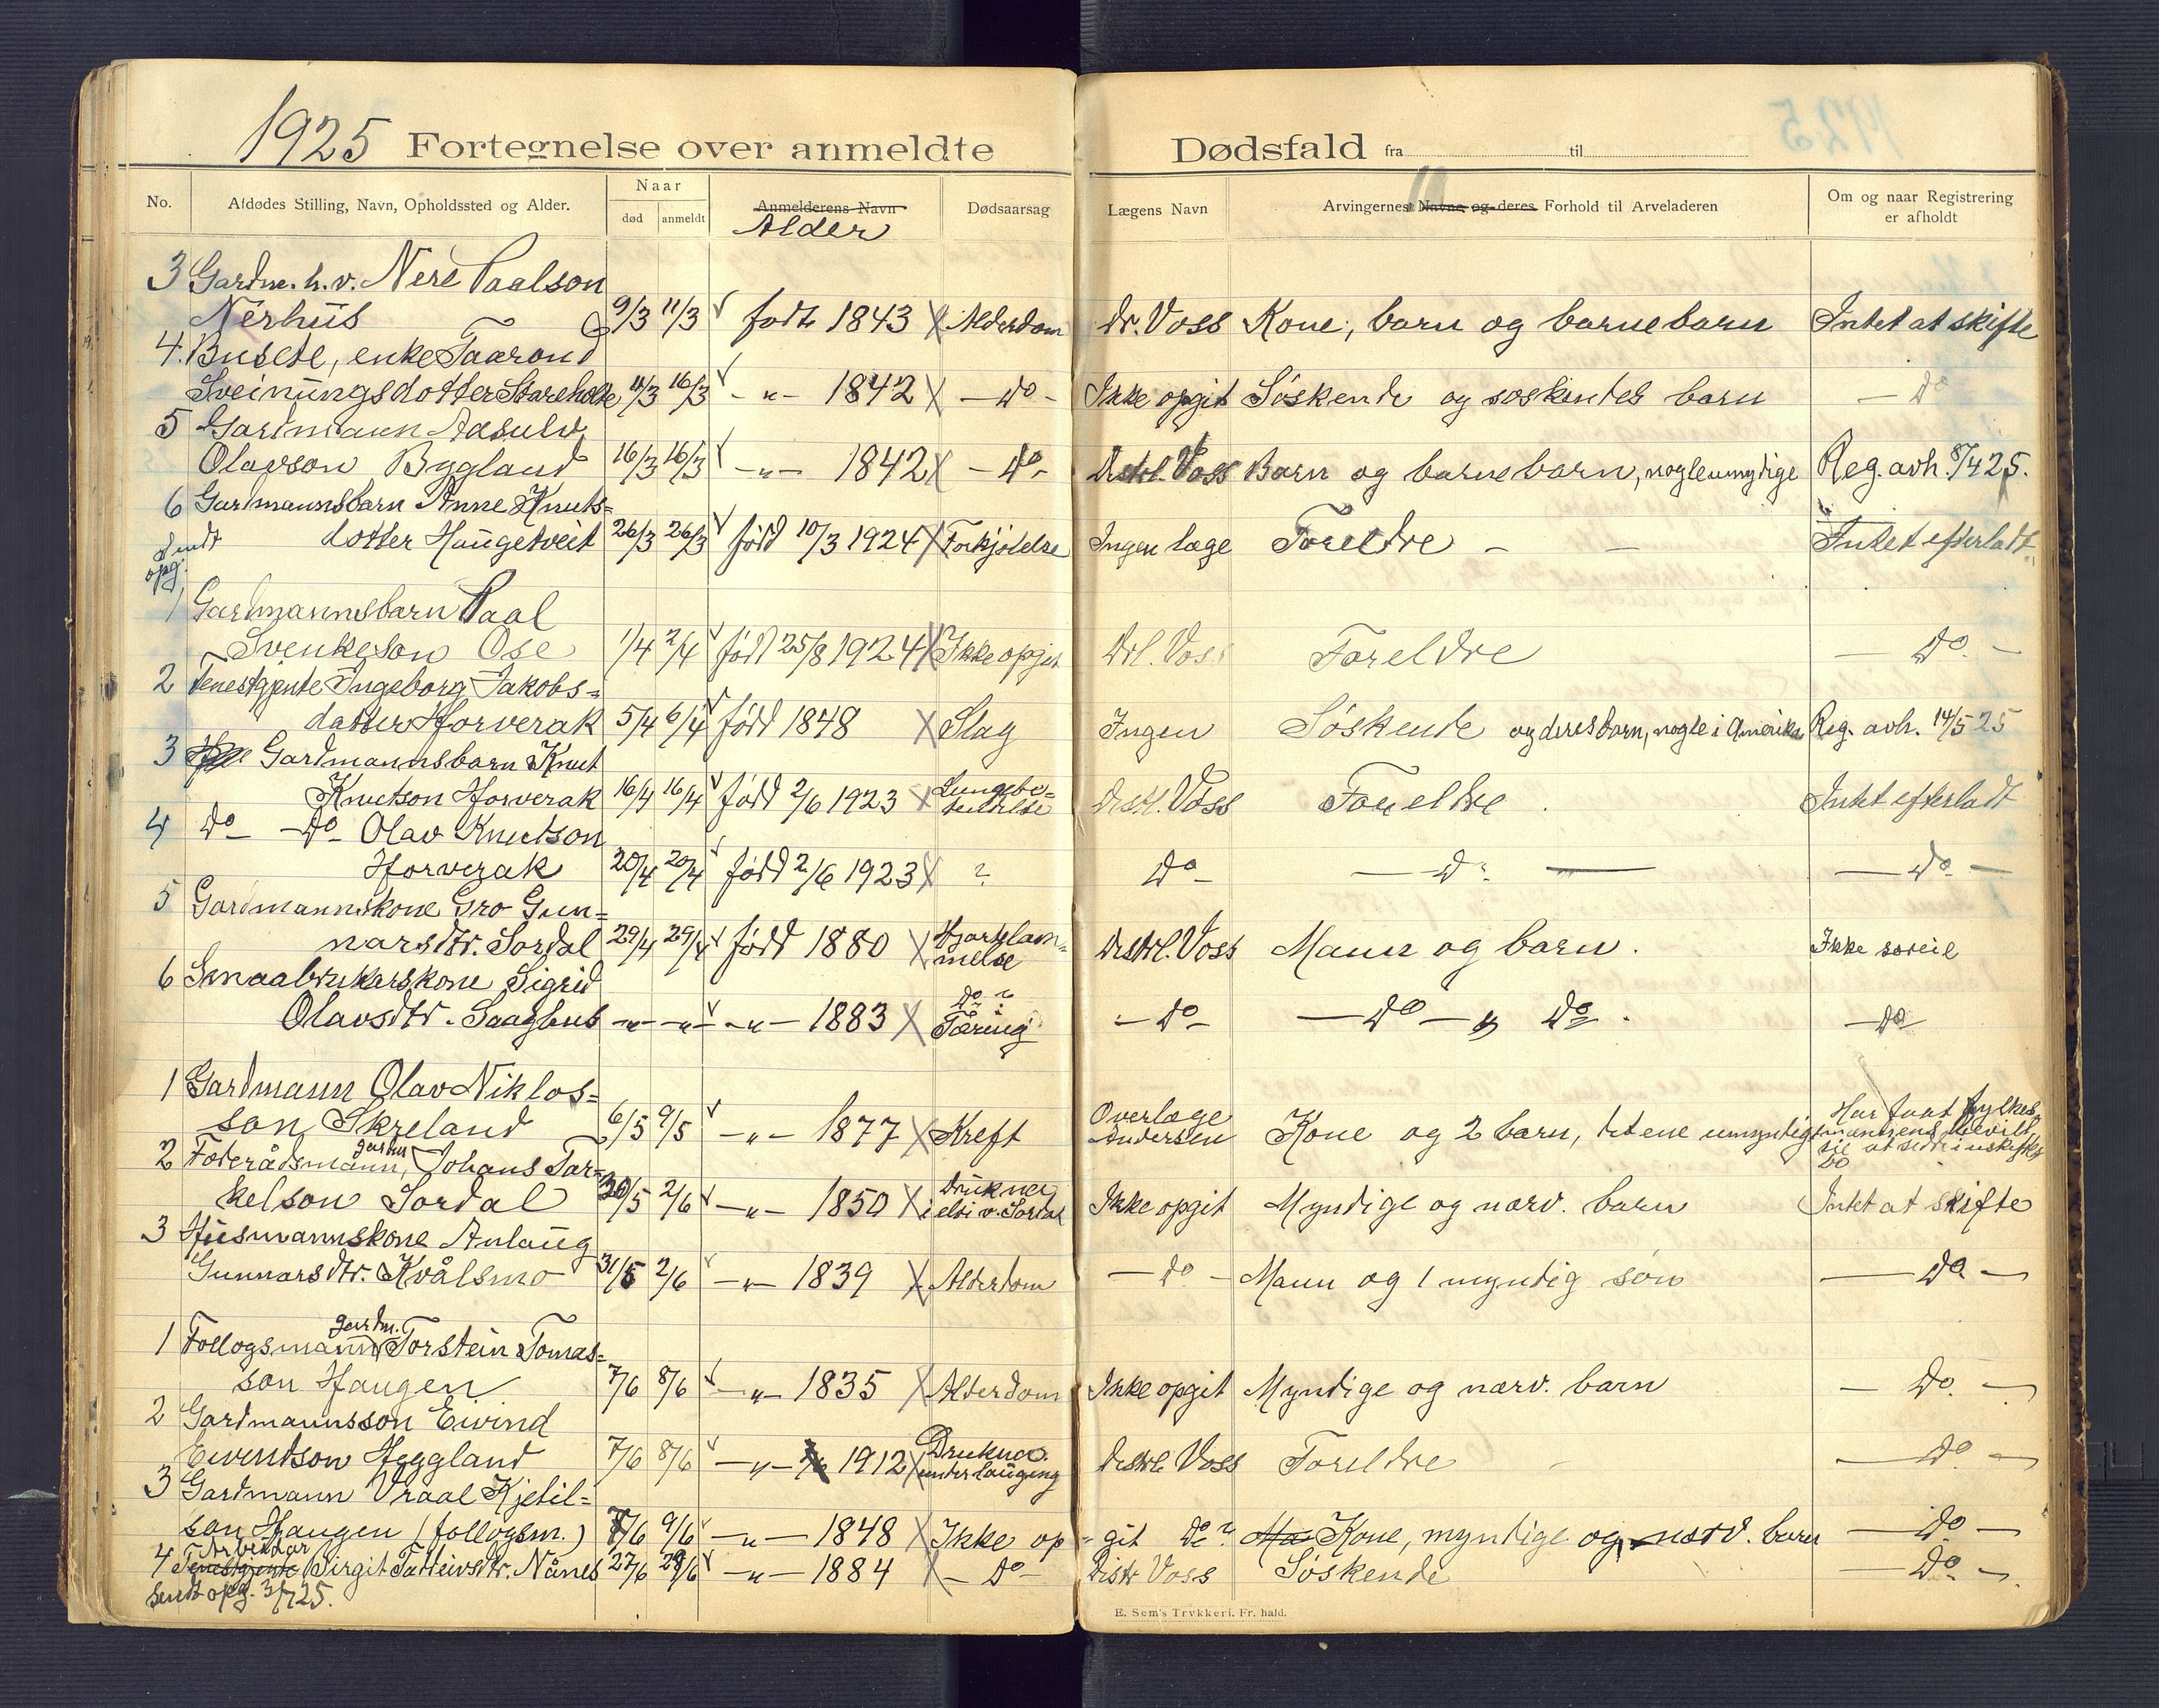 1925 Fortegnelse over anmeldte Dødsfald fra til
No. Afdødes Stilling, Navn, Opholdssted og Alder. Naar død anmeldt Anmelderens Navn Alder Dødsaarsag Lægens Navn Arvingernes Navne og deres Forhold til Arveladeren Om og naar Registrering er afholdt
3 Gardm. h. v. Nere Paalson
Nerhus 9/3 11/3 født 1843 Alderdom Dr. Voss Kone, barn og barnebarn Intet at skifte
4. Busete, enke Taaround
Sveinungsdotter 11/3 16/3 - " - 1842 - Do - Ikke opgit Søskende og søskendes barn - Do
5 Gardmann Aasulv
Olavson Bygland 16/3 16/3 - " - 1842 - Do - Distrl. Voss Barn og barnebarn, nogle umyndige Reg. avh. 8/4 25.
6 Gardmannsbarn Anne Knuts=
dotter Haugetveit 26/3 26/3 född 10/3 1924 Forkjølelse Ingen læge Foreldre - - Intet efterladt
sendt
opg.
1 Gardmannsbarn Paal
Svenkeson Ose 1/4 2/4 född 25/8 1924 Ikke opgit Drl. Voss Foreldre - Do. -
2 Tenestgjente Ingeborg Jakobs=
datter Horverak 5/4 6/4 född 1848 Slag Ingen Søskende og deres barn, nogle i Amerika Reg. avh. 14/5 25
3 Gardmannsbarn Knut
Knutson Horverak 16/4 16/4 född 2/6 1923 Lungebe=
tendelse Distrl. Voss Foreldre . Intet efterladt
4 Do - Do - Olav Knutson
Horverak 20/4 20/4 född 2/6 1923 ? Do - Do - - Do -
5 Gardmannskone Gro Gun=
narsdtr. Sordal 29/4 29/4 född 1880 Hjartelam=
melse Distrl. Voss Mann og barn. Ikke
6 Smaabrukerskone Sigrid
Olavsdtr. - " - - " - - " - 1883 Do ?
Tæring - Do - - Do - og Do - . - Do -
1 Gardmann Olav Niklos=
son Skreland 6/5 9/5 - " - 1877 Kreft Overlæge
Andersen Kone og 2 barn, det ene umyndig Har faat fylkes
mannens
sitte i uskiftet
bo
2 Foderådsmann, gardm Johans Tar=
kelson Sordal 30/5 2/6 - " - 1850 Druknet
i elvi v. Sordal Ikke opgit Myndige og nærv. barn Intet at skifte
3 Husmannskone Anlaug
Gunnarsdtr. Kvålsmo 31/5 2/6 - " - 1839 Alderdom - Do - Mann og 1 myndig søn - Do -
1 Follogsmann gardm. Torstein Tomas=
son Haugen 7/6 8/6 - " - 1835 Alderdom Ikke opgit Myndige og nærv. barn - Do. -
2 Gardmannsson Eivind
Eivindson Heggland 7/6 8/6 - " - 1912 Druknet
under lauging Distrl. Voss Foreldre - - Do -
3 Gardmann Vraal Kjetil=
son Haugen (follogsm.) 8/6 9/6 - " - 1848 Ikke op=git Do ? Kone, myndige og nærv. barn - Do -
4 Tenestgjente Arbeidar Birgit Tarjeivsdtr. Nånes 27/6 29/6 - " - 1884 - Do - Distr Voss Søskende - Do -.
Sendt opg. 3/7 25.
E. Sem's Trykkeri, Fr. hald.